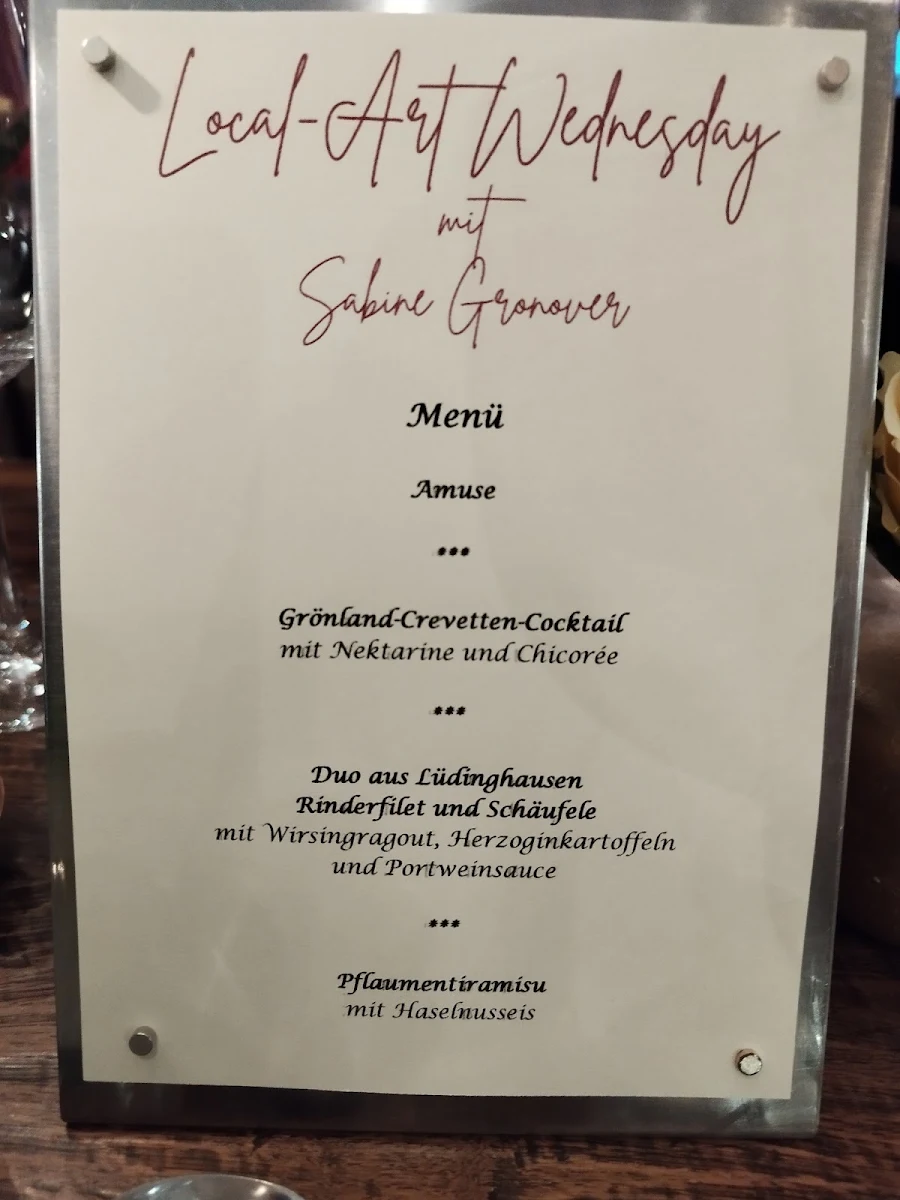 Local-Art Wednesday
mit
Sabine Gronover
Menü
Amuse
***
Grönland-Crevetten-Cocktail
mit Nektarine und Chicorée
***
Duo aus Lüdinghausen
Rinderfilet und Schäufele
mit Wirsingragout, Herzoginkartoffeln
und Portweinsauce
***
Pflaumentiramisu
mit Haselnusseis